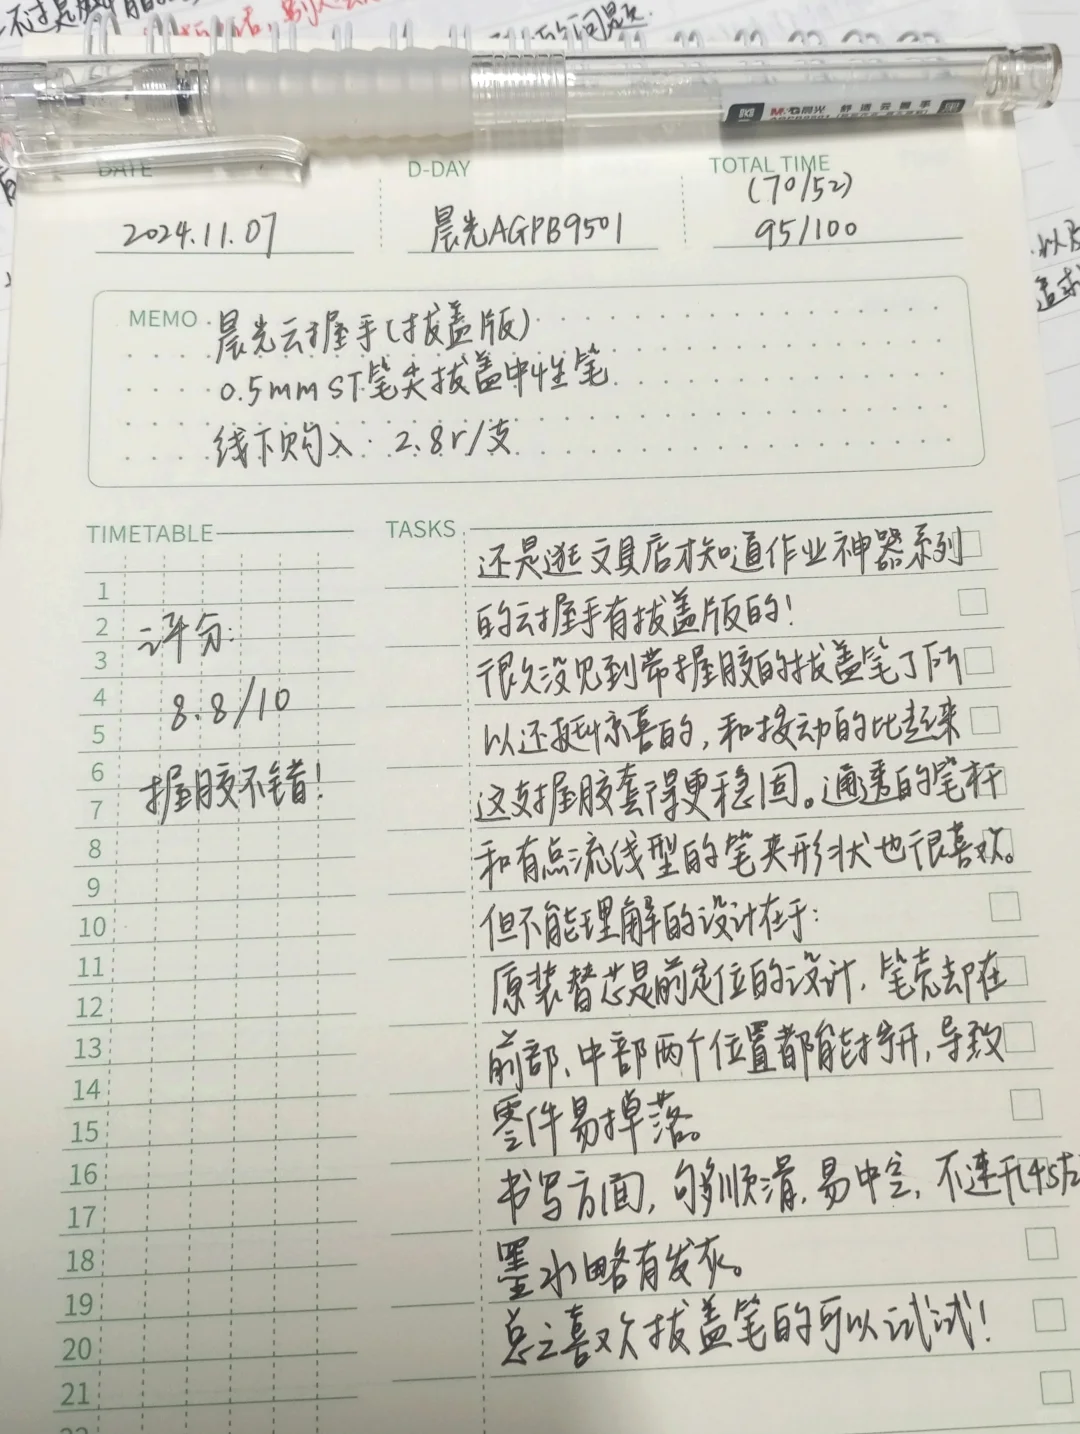 的问题.
M&G晨光 舒适云握手
DATE
D-DAY
TOTAL TIME
(70/52)
2024.11.07
晨光AGPB9501
95/100
MEMO
晨光云握手(拔盖版)
0.5mm ST笔尖拔盖中性笔
线下购入: 2.8r/支
TIMETABLE
1
2
3
4
5
6
7
8
9
10
11
12
13
14
15
16
17
18
19
20
21
评分:
8.8/10
握胶不错!
TASKS
还是逛文具店才知道作业神器系列
的云握手有拔盖版的!
很久没见到带握胶的拔盖笔了所
以还挺惊喜的,和按动的比起来
这支握胶套得更稳固。通透的笔杆
和有点流线型的笔夹形状也很喜欢。
但不能理解的设计在于:
原装替芯是前定位的设计,笔壳却在
前部、中部两个位置都能拧开,导致
零件易掉落。
书写方面,够顺滑,易中空,不速干(45左
墨水略有发灰。
总之喜欢拔盖笔的可以试试!
以及
追求